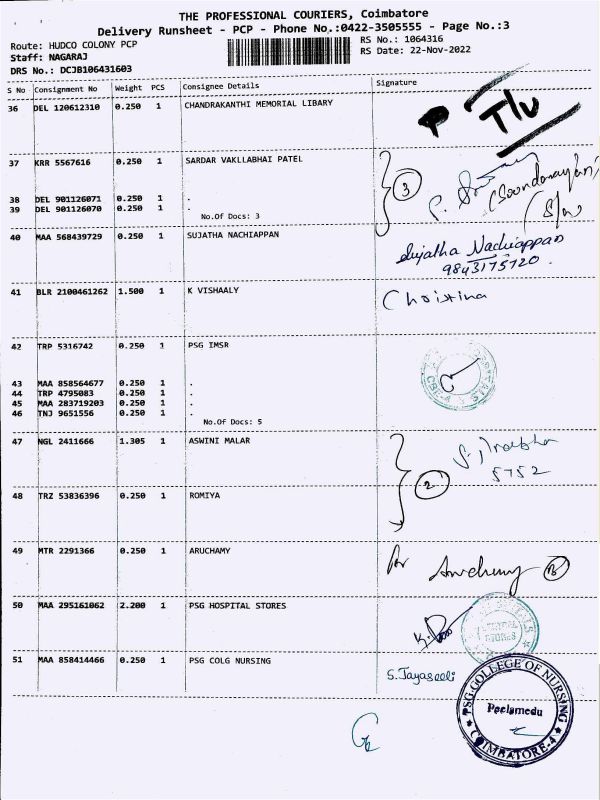 THE PROFESSIONAL COURIERS, Coimbatore
Delivery Runsheet - PCP - Phone No.:0422-3505555 - Page No.:3
Route: HUDCO COLONY PCP
RS No.: 1064316
Staff: NAGARAJ
RS Date: 22-Nov-2022
DRS No.: DCJB106431603
S No Consignment No Weight PCS Consignee Details Signature
36 DEL 120612310 0.250 1 CHANDRAKANTHI MEMORIAL LIBARY
37 KRR 5567616 0.250 1 SARDAR VAKLLABHAI PATEL
3
38 DEL 901126071 0.250 1 .
39 DEL 901126070 0.250 1 .
No.Of Docs: 3
40 MAA 568439729 0.250 1 SUJATHA NACHIAPPAN
Sujatha Nachiappan
9843175720.
41 BLR 2100461262 1.500 1 K VISHAALY
Christina
42 TRP 5316742 0.250 1 PSG IMSR
43 MAA 858564677 0.250 1 .
44 TRP 4795083 0.250 1 .
45 MAA 283719203 0.250 1 .
46 TNJ 9651556 0.250 1 .
No.Of Docs: 5
47 NGL 2411666 1.305 1 ASWINI MALAR
5752
2
48 TRZ 53836396 0.250 1 ROMIYA
49 MTR 2291366 0.250 1 ARUCHAMY
50 MAA 295161062 2.200 1 PSG HOSPITAL STORES
STORES
51 MAA 858414466 0.250 1 PSG COLG NURSING
S. Jayaseeli
PSG COLLEGE OF NURSING
Peelamedu
COIMBATORE-4